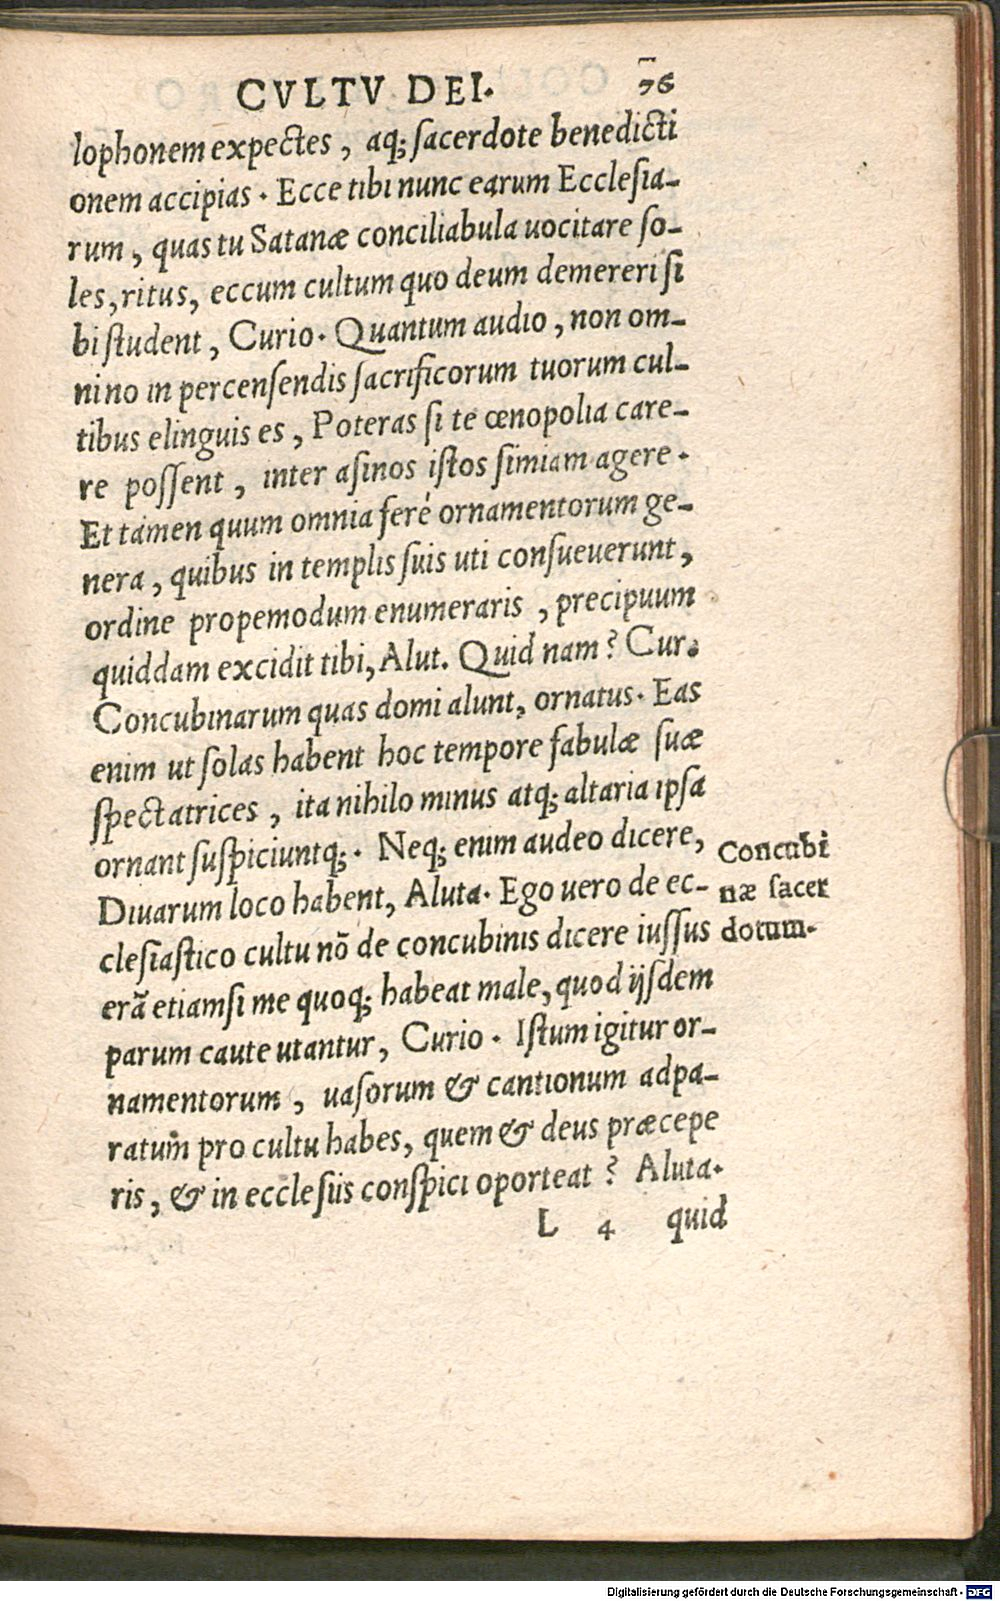 CVLTV DEI. 76
lophonem expectes, aq; sacerdote benedicti
onem accipias. Ecce tibi nunc earum Ecclesia-
rum, quas tu Satanæ conciliabula uocitare so-
les, ritus, eccum cultum quo deum demereri si
bi student, Curio. Quantum audio, non om-
nino in percensendis sacrificorum tuorum cul-
tibus elinguis es, Poteras si te œnopolia care-
re possent, inter asinos istos simiam agere.
Et tamen quum omnia feré ornamentorum ge-
nera, quibus in templis suis uti consueuerunt,
ordine propemodum enumeraris, precipuum
quiddam excidit tibi, Alut. Quid nam? Cur.
Concubinarum quas domi alunt, ornatus. Eas
enim ut solas habent hoc tempore fabulæ suæ
spectatrices, ita nihilo minus atq; altaria ipsa
ornant suspiciuntq;. Neq; enim audeo dicere,
Diuarum loco habent, Aluta. Ego uero de ec-
clesiastico cultu nõ de concubinis dicere iussus
erã etiamsi me quoq; habeat male, quod ijsdem
parum caute utantur, Curio. Istum igitur or-
namentorum, uasorum & cantionum adpa-
ratum pro cultu habes, quem & deus præcepe
ris, & in ecclesiis conspici oporteat? Aluta.
L 4 quid
Concubi
næ sacer
dotum.
Digitalisierung gefördert durch die Deutsche Forschungsgemeinschaft - DFG